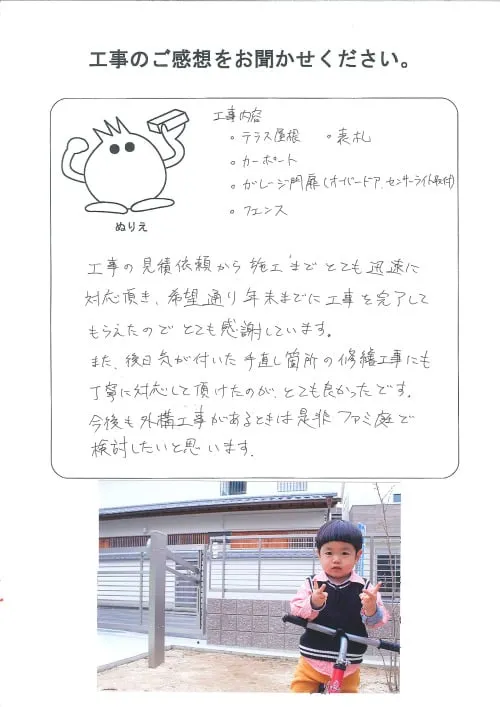 工事のご感想をお聞かせください。
工事内容
・テラス屋根 ・表札
・カーポート
・ガレージ門扉(オーバードア、センサーライト取付)
・フェンス
ぬりえ
工事の見積依頼から施工までとても迅速に
対応頂き、希望通り年末までに工事を完了して
もらえたのでとても感謝しています。
また、後日気が付いた手直し箇所の修繕工事にも
丁寧に対応して頂けたのが、とても良かったです。
今後も外構工事があるときは是非ファミ庭で
検討したいと思います。